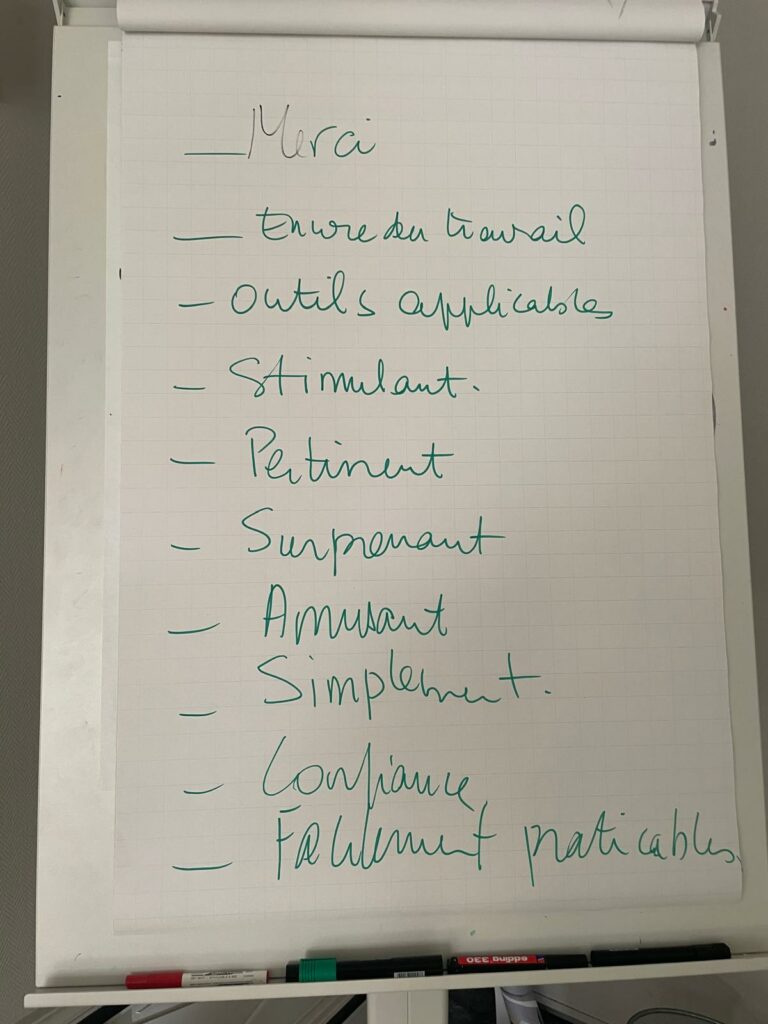 — Merci
— Encore du travail
— Outils applicables
— Stimulant.
— Pertinent
— Surprenant
— Amusant
— Simplement.
— Confiance
— Facilement praticables.
edding 330